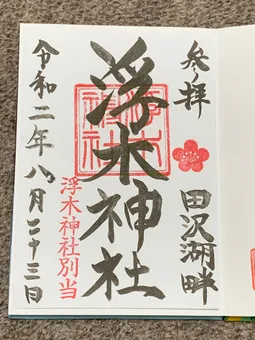 参拝
田沢湖畔
浮木神社
浮木神社
浮木神社別当
令和二年八月二十三日